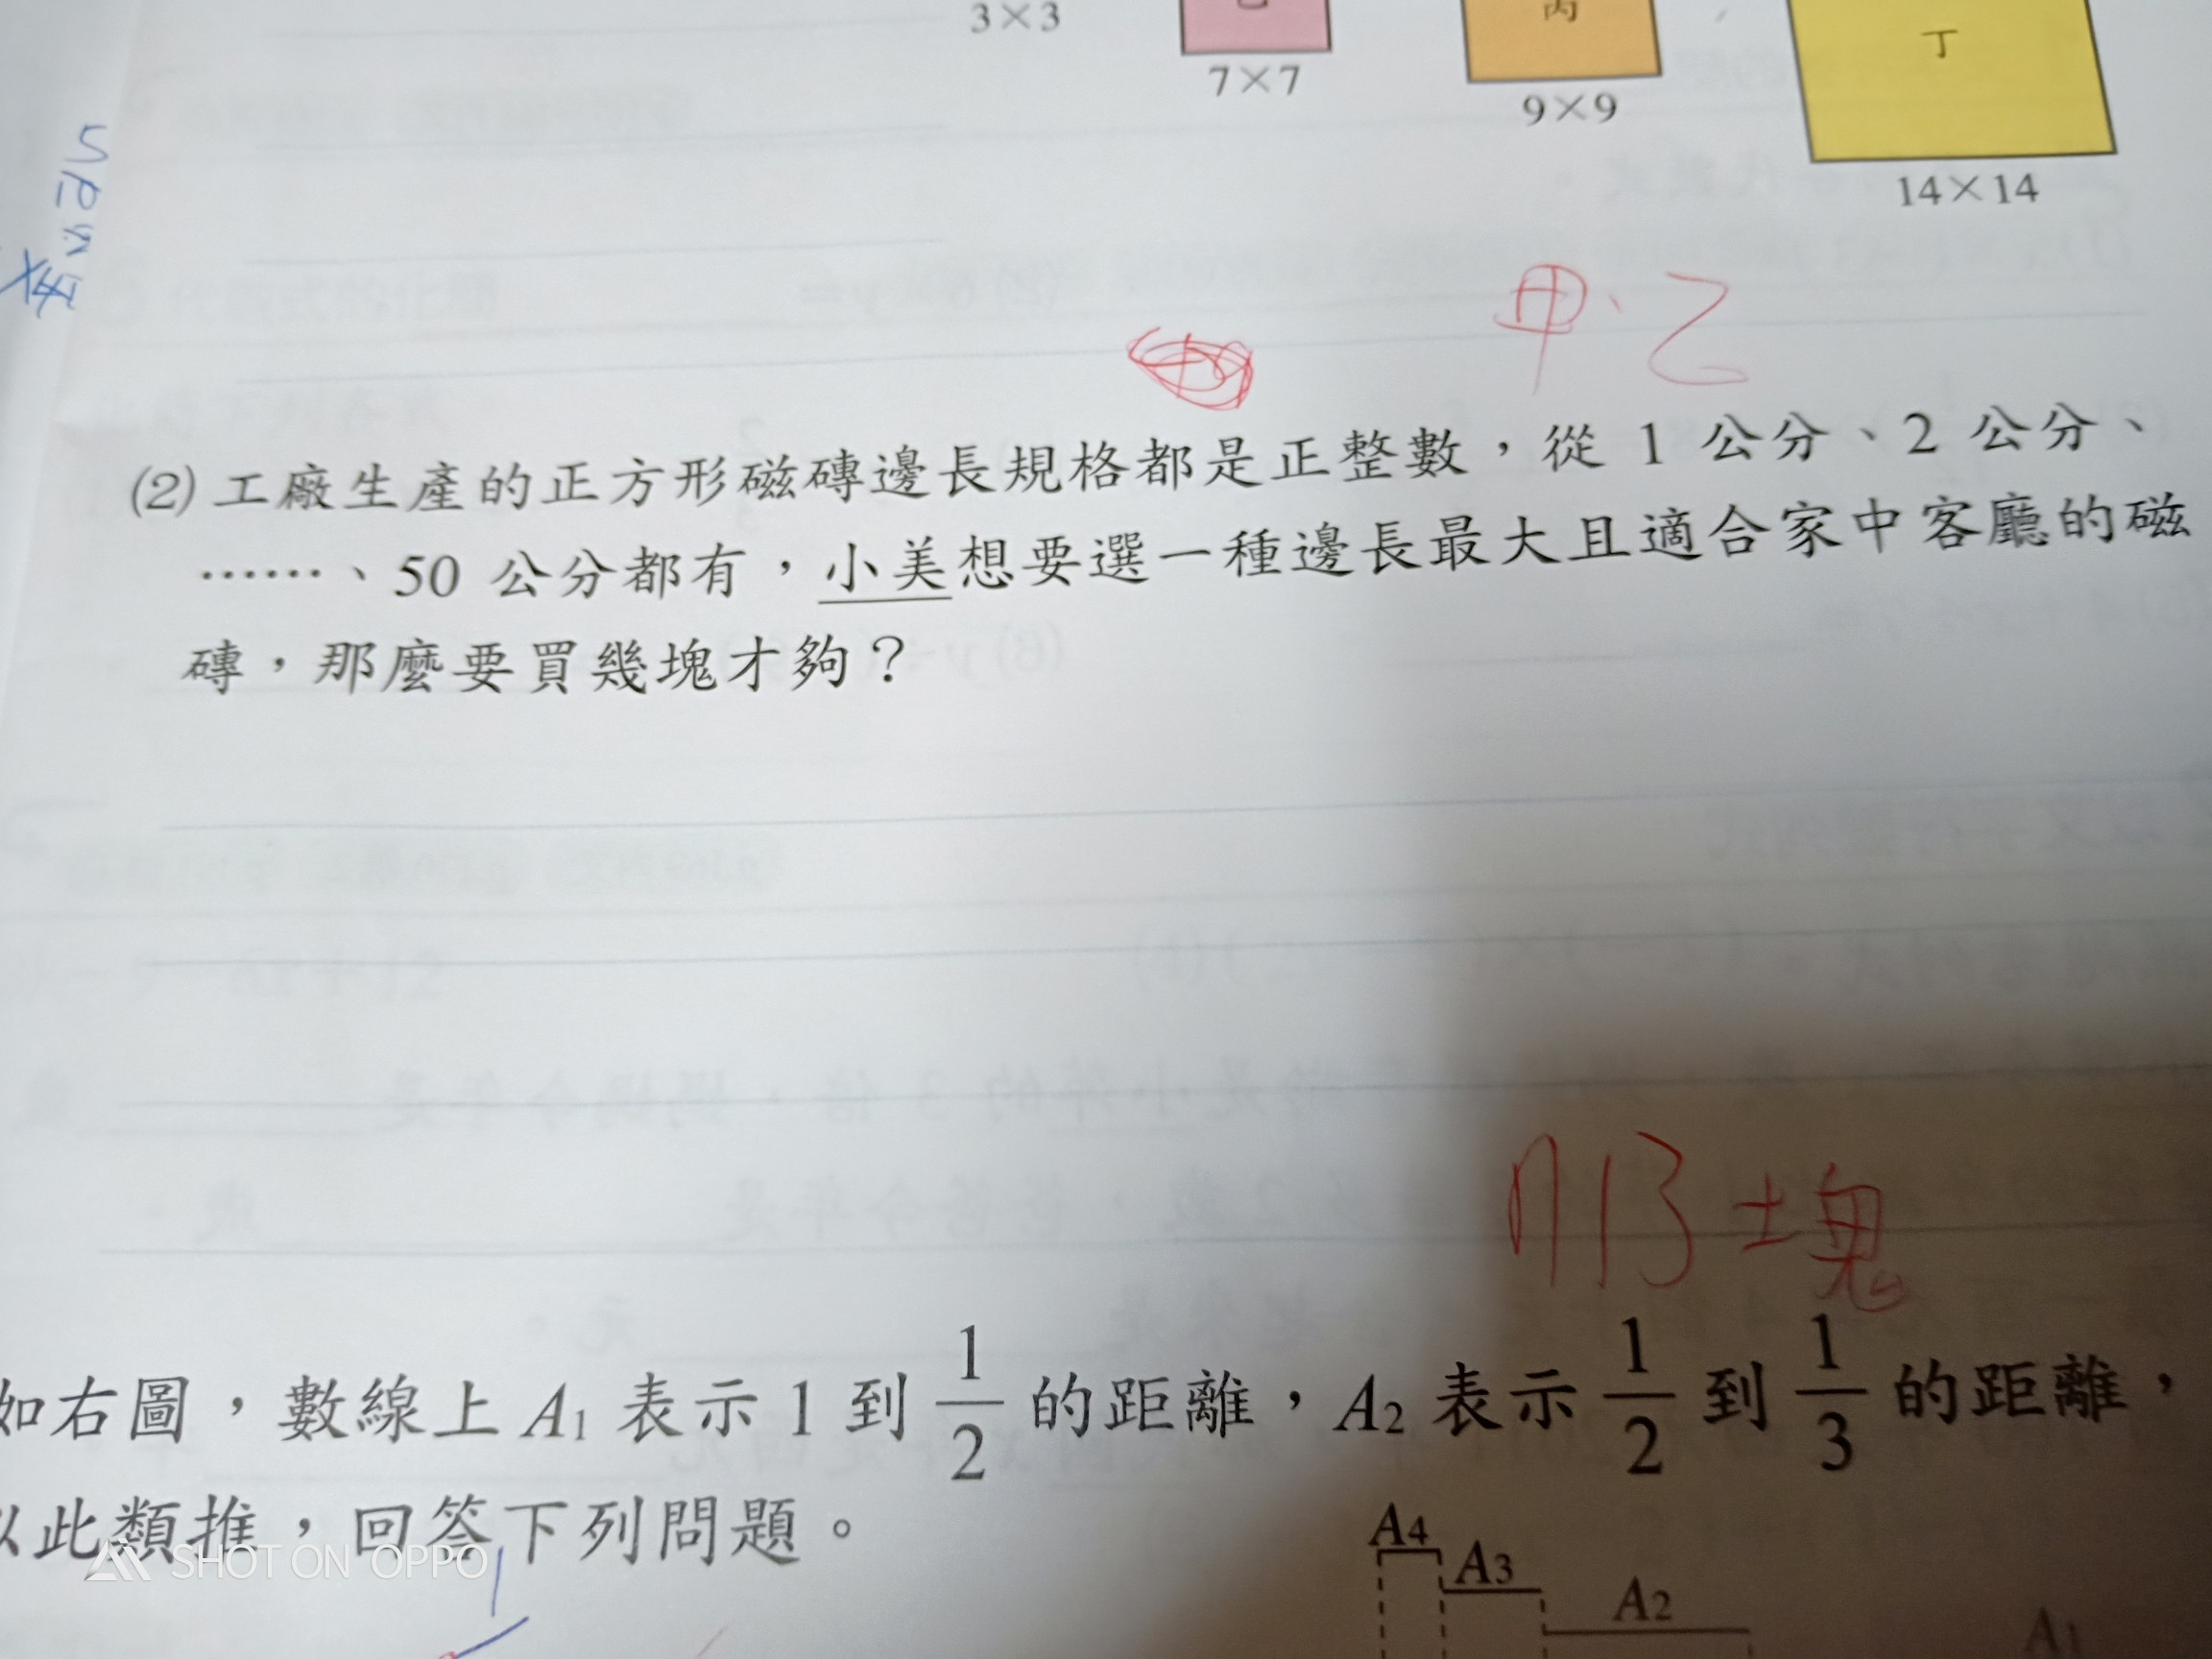 3×3
7×7
丙
9×9
丁
14×14
甲、乙
(2) 工廠生產的正方形磁磚邊長規格都是正整數，從 1 公分、2 公分、
……、50 公分都有，小美想要選一種邊長最大且適合家中客廳的磁
磚，那麼要買幾塊才夠？
塊
如右圖，數線上 A1 表示 1 到 1/2 的距離，A2 表示 1/2 到 1/3 的距離，
以此類推，回答下列問題。
A4
A3
A2
A1
SHOT ON OPPO